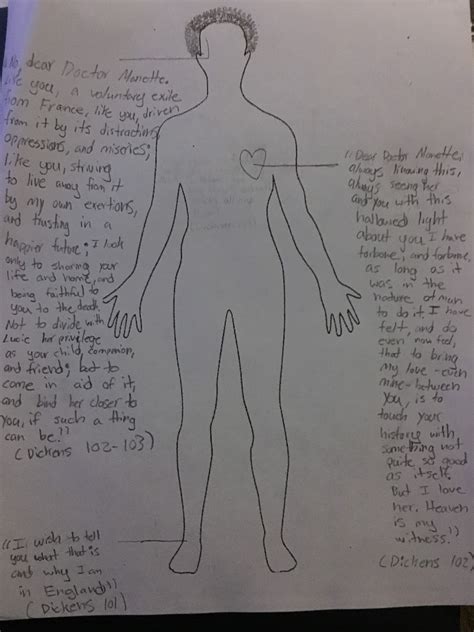 No, dear Doctor Manette.
Like you, a voluntary exile
from France, like you, driven
from it by its distractions,
oppressions, and miseries;
like you, striving
to live away from it
by my own exertions,
and trusting in a
happier future; I look
only to sharing your
life and home, and
being faithful to
you to the death.
Not to divide with
Lucie her privelege
as your child, companion,
and friend; but to
come in aid of it,
and bind her closer to
you, if such a thing
can be."
(Dickens 102-103)
"I wish to tell
you what that is
and why I am
in England"
(Dickens 101)
"Dear Doctor Manette,
always knowing this,
always seeing her
and you with this
hallowed light
about you I have
forborne, and forborne,
as long as it
was in the
nature of man
to do it. I have
felt, and do
even now feel,
that to bring
my love-even
mine-between
you, is to
touch your
history with
something not
quite so good
as itself.
But I love
her. Heaven
is my
witness."
(Dickens 102)